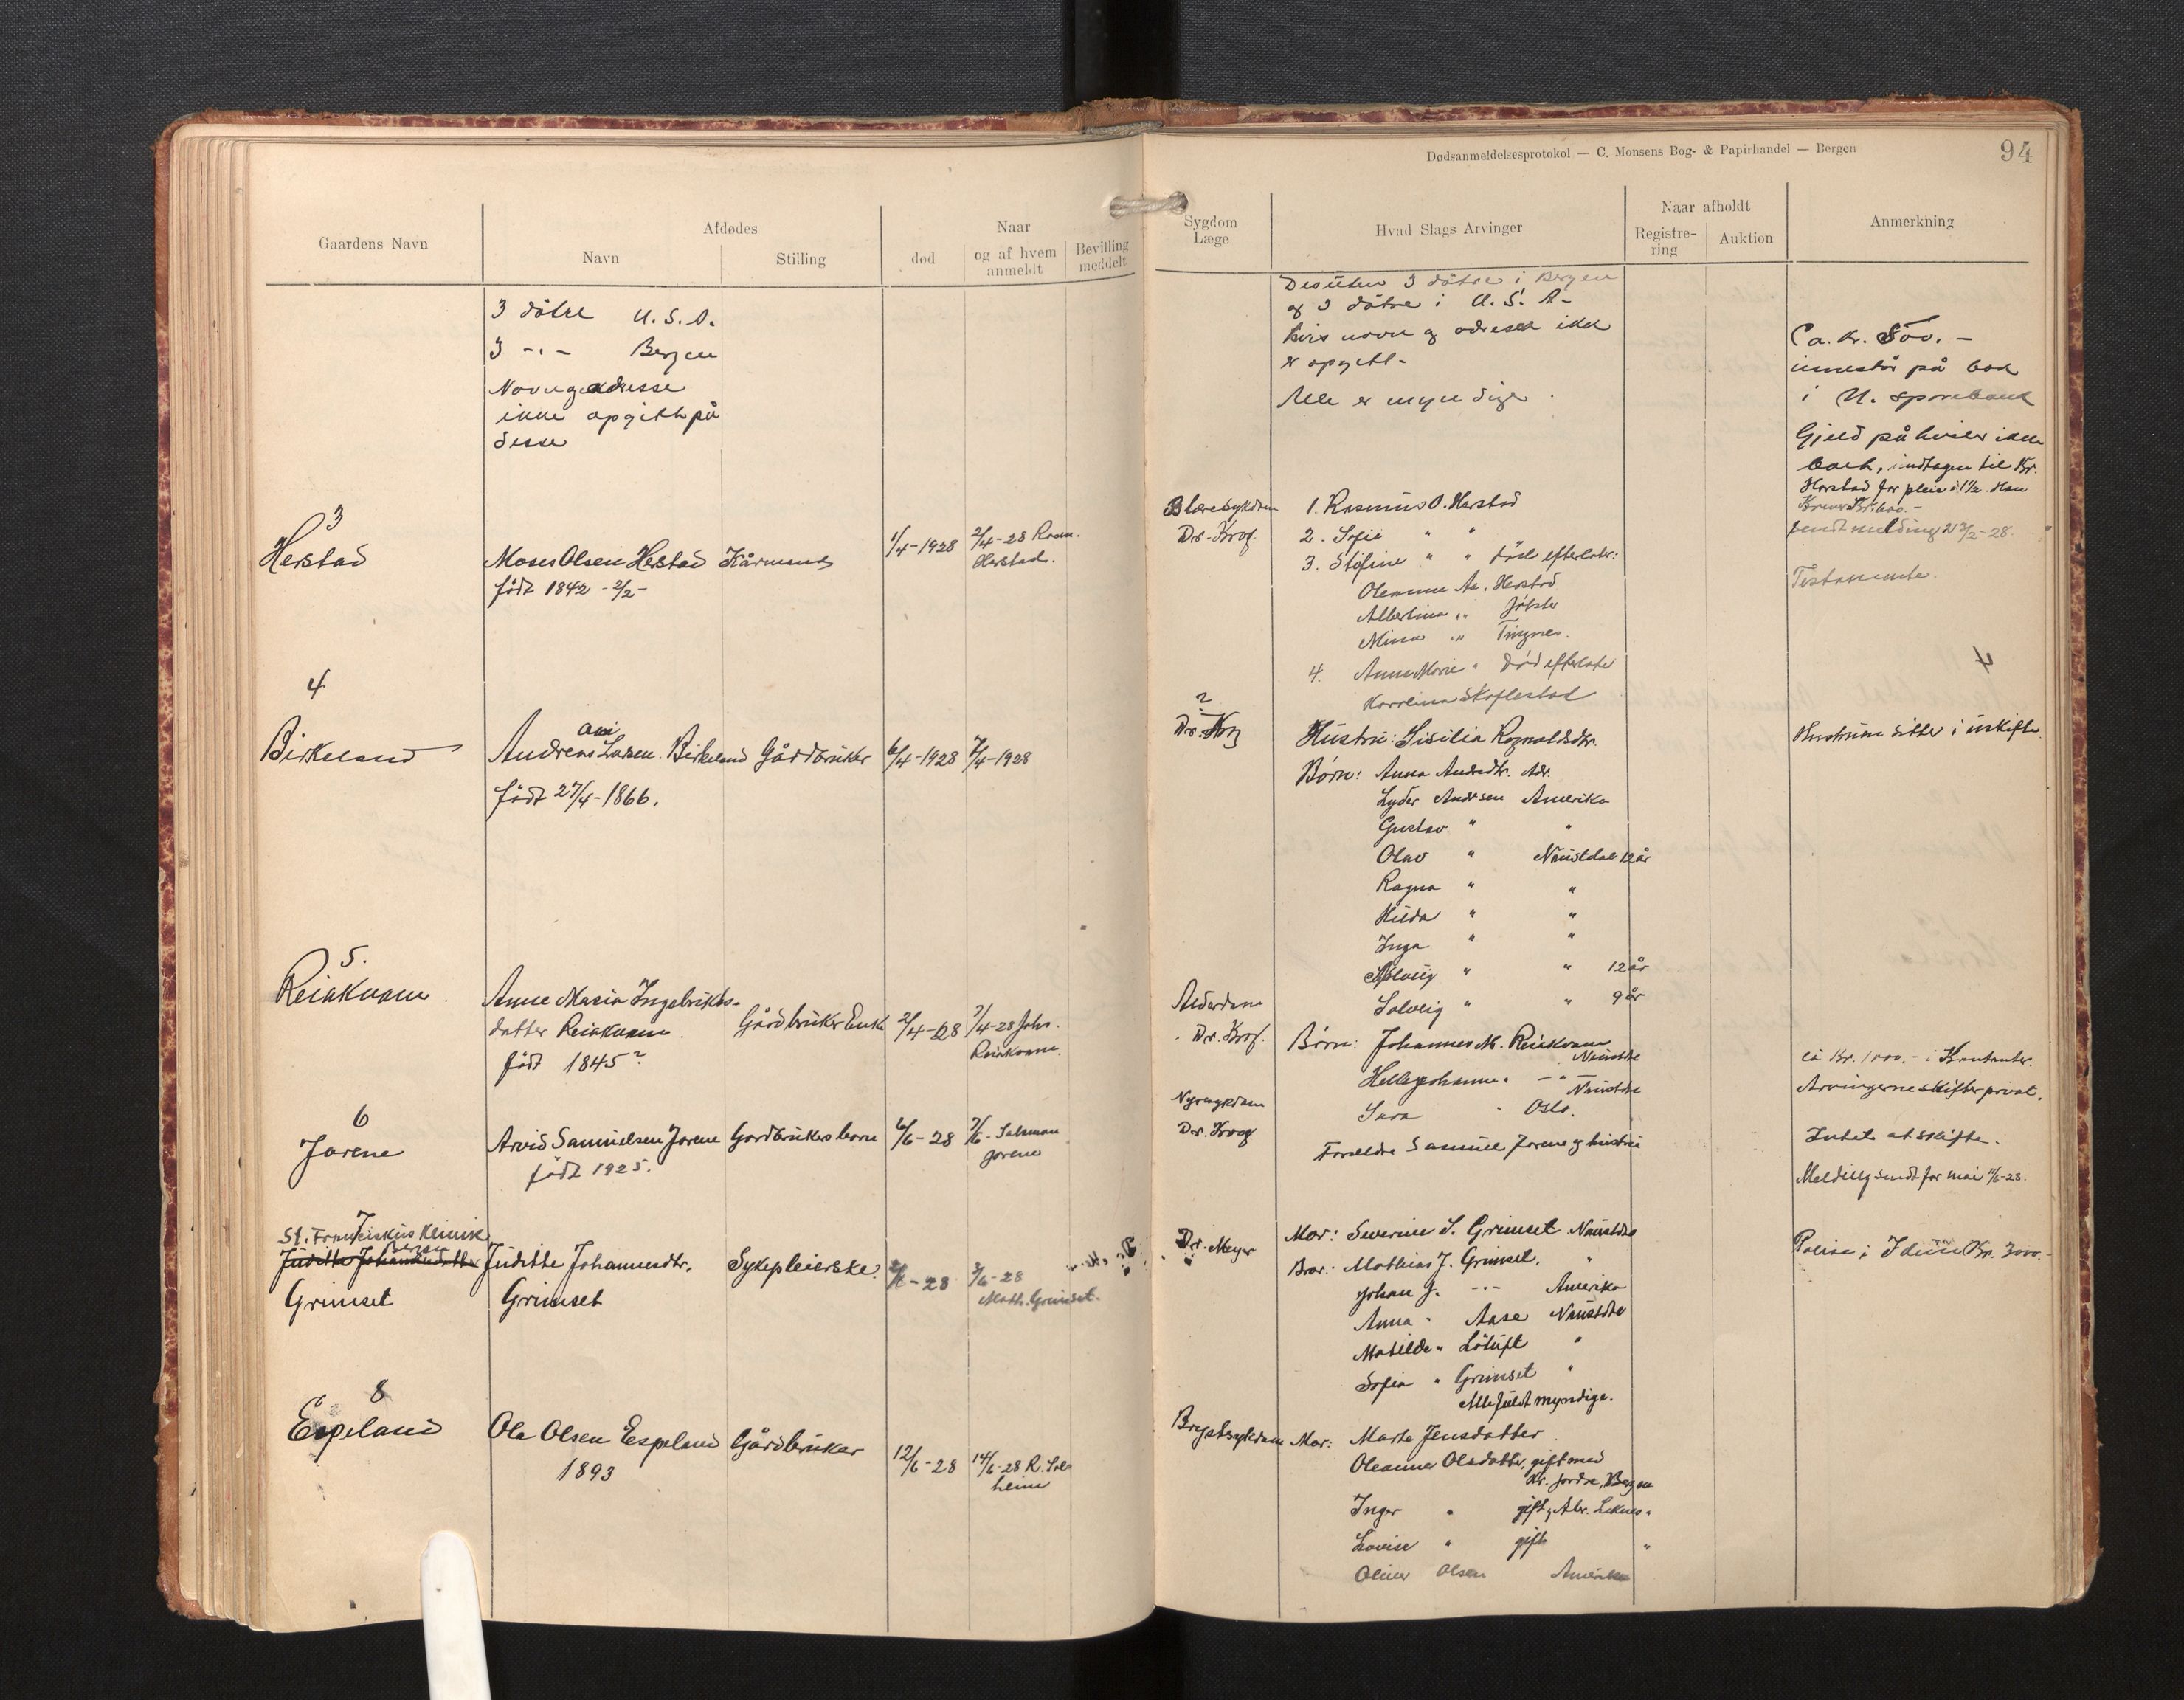 Dødsanmeldelsesprotokol — C. Monsens Bog- & Papirhandel — Bergen
94
Gaardens Navn
Afdødes
Navn
Stilling
Naar
død
og af hvem anmeldt
Bevilling meddelt
Sygdom
Læge
Hvad Slags Arvinger
Naar afholdt
Registrering
Auktion
Anmerkning
3 døtre U.S.A.
3 -"- Bergen
Navn og adresse
ikke opgitt på
disse
Desuten 3 døtre i Bergen
og 3 døtre i U.S.A-
hvis navn og adresse ikke
er opgitt-
Alle er myndige
Ca. kr. 500.-
innestår på bok
i N. sparebank
Gjeld påhviler ikke
3
Herstad
Moses Olsen Herstad
født 1842 - 2/2 -
Kårmand
1/4-1928
2/4-28 Rasm.
Herstad.
Blæresykdom
Dr. Krog.
1. Rasmus O. Herstad
2. Sofie " "
3. Stefine " " død efterlater:
Olemine Aa. Herstad
Albertina " Jölster
Mina " Tingnes.
4. Anne Marie " død efterlater
Karolina Skaflestad
Testamente.
4
Birkeland
Andreas Larsen Birkeland
født 27/4-1866.
Gårdbruker
6/4-1928
7/4-1928
?
Dr. Krog
Hustru: Sisilia Ragnaldsdtr.
Børn: Anna Andrsdtr. Adr.
Lyder Andrsen Amerika
Gustav " "
Olav " Naustdal 12 år
Ragna " "
Hilda " "
Inga " "
" " 12 år
Solveig " " 9 år
4
Hustruen sitter i uskifte
5.
Reiakvam
Anne Maria Ingebrikts-
datter Reiakvam
født 1845?
Gårdbruker Enke
2/4-28
7/4-28 Johs.
Reiakvam.
Alderdom
Dr. Krog.
Børn: Johannes M. Reiakvam
Naustda
Helle Johanne " - " - Naustda
Sara " Oslo.
ca Kr. 1000.- i Kontanter.
Arvingerne skifter privat.
6
Jorene
Arvid Samuelsen Jorene
født 1925.
Gardbrukers barn
6/6-28
7/6- Salomon
Jorene
Nyresykdom
Dr. Krog
Forældre Samuel Jorene og hustru
Intet at skifte.
Melding sendt for mai 11/6-28.
7
St. Franciskus Klinik
Bergen
Juditte Johannesdatter
Grimset
Juditte Johannesdtr.
Grimset
Sykepleierske.
2/6-28
3/6-28
Math. Grimset.
Dr. Meyer
Mor: Severine S. Grimset Naustda
Bror: Mathias J. Grimset. "
Johan J. -"- Amerika
Anna " Aase Naustda
Matilda " Løtuft "
Sofia " Grimset "
Alle fuldt myndige.
Polise i Idun Kr. 3000.-
8
Espeland
Ole Olsen Espeland
1893
Gårdbruker
12/6-28
14/6-28 R. Sol-
heim
Brystsykdom
Mor: Marta Jensdatter
Oleanna Olsdatter, gift med
Kr. Jordre, Bergen
Inger " gift, Abr. Leknes "
Lovise " gift "
Oliver Olsen Amerika